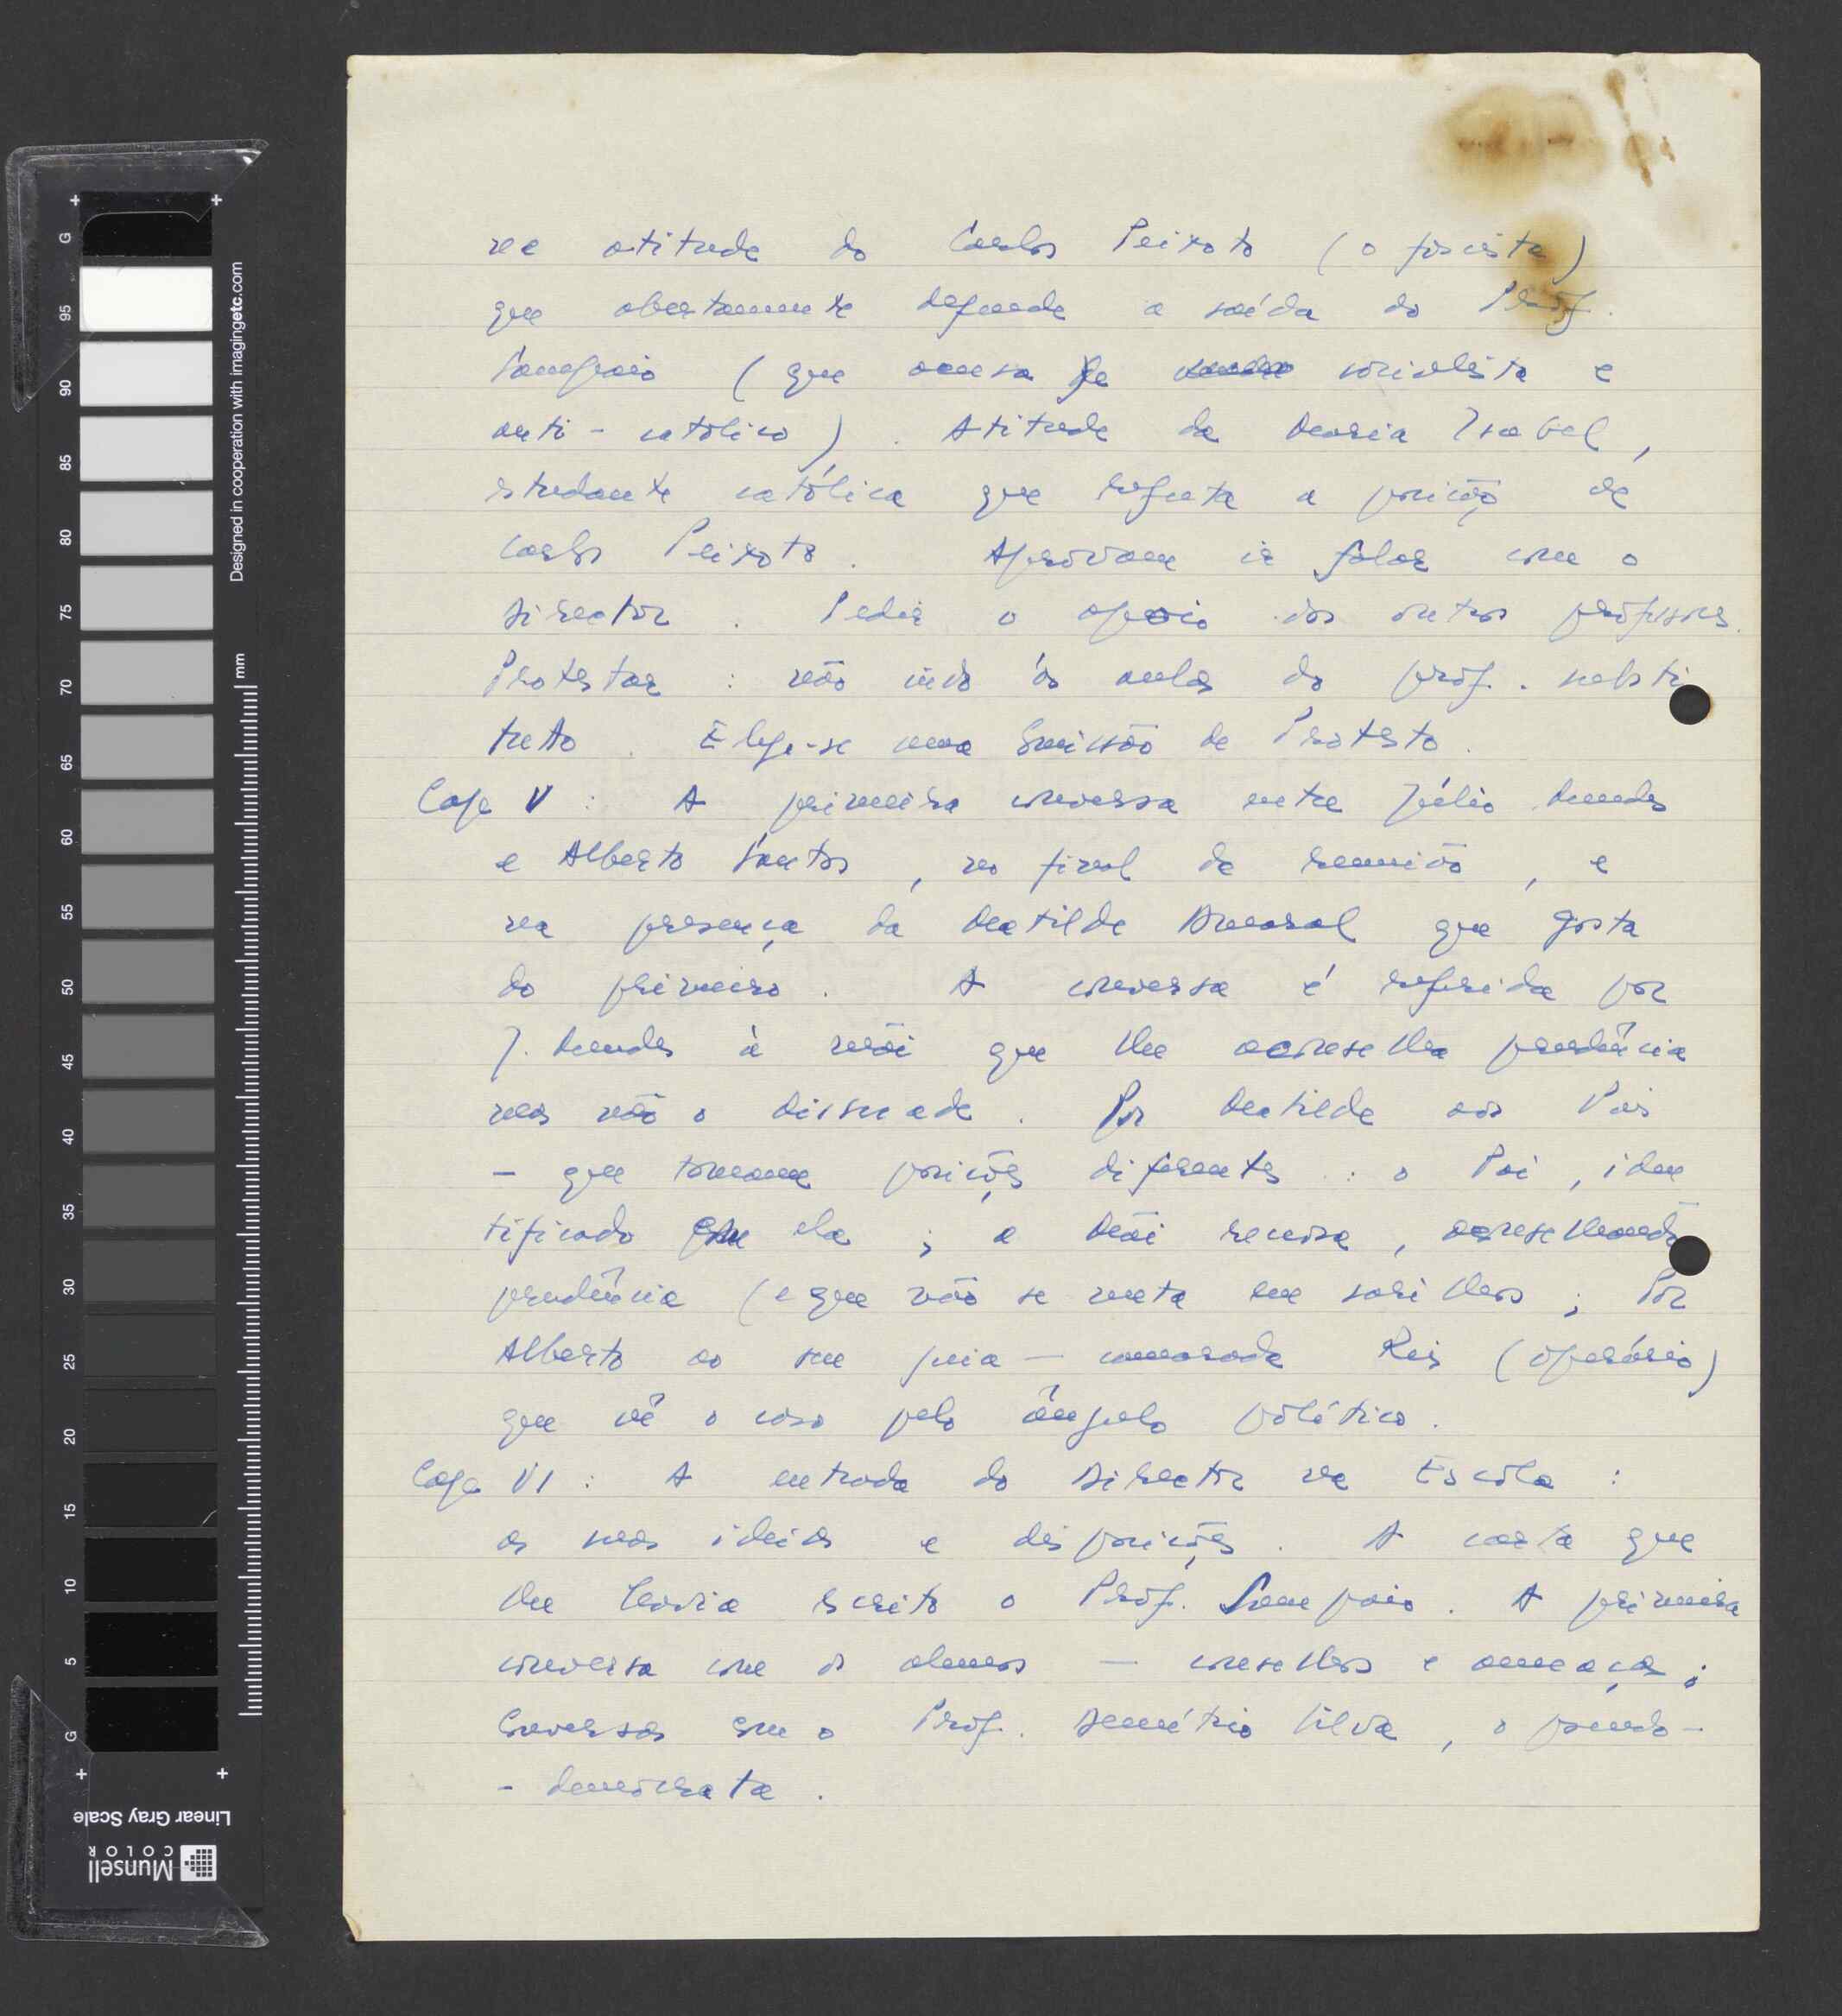 na atitude do Carlos Peixoto (o fascista)
que abertamente defende a saída do Prof.
Sampaio (que acusa de socialista e
anti-católico). Atitude da Maria Isabel,
estudante católica que refuta a posição de
Carlos Peixoto. Aprovam ir falar com o
Director. Pedir o apoio dos outros professores.
Protestar: não indo às aulas do prof. substi
tuto. Elege-se uma Comissão de Protesto.
Cap V: A primeira conversa entre Júlio Mendes
e Alberto Santos, no final da reunião, e
na presença da Matilde Amaral que gosta
do primeiro. A conversa é referida por
J. Mendes à mãi que lhe aconselha prudência
mas não o dissuade. Por Matilde aos Pais
- que tomam posições diferentes: o Pai, iden
tificado com ela; a Mãi receosa, aconselhando
prudência (e que não se meta em sarilhos; Por
Alberto ao seu guia - camarada Reis (operário)
que vê o caso pelo ângulo político.
Cap VI: A entrada do Director na Escola:
as suas ideias e disposições. A carta que
lhe havia escrito o Prof. Sampaio. A primeira
conversa com os alunos - conselhos e ameaças;
Conversas com o Prof. Demétrio Silva, o pseudo-
- democrata.
Designed in cooperation with imagingetc.com
mm
G
95
90
85
80
75
70
65
60
55
50
45
40
35
30
25
20
15
10
5
G
Linear Gray Scale
Munsell
COLOR